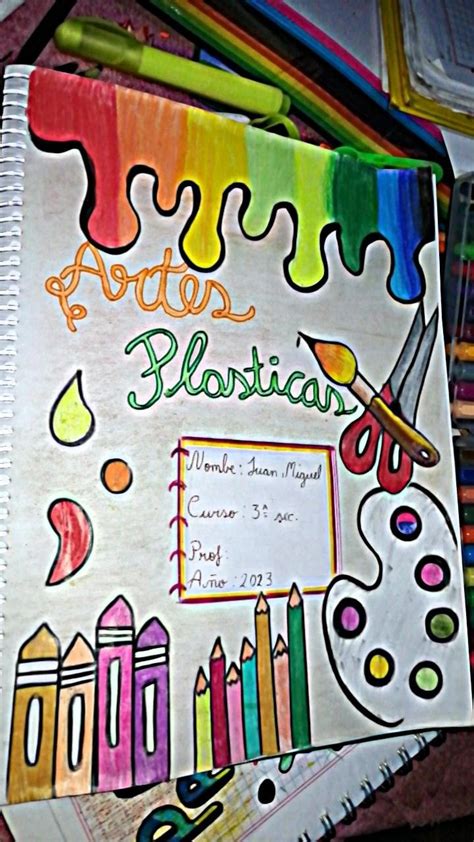 Artes
Plasticas
Nombe: Juan Miguel
Curso: 3ª sec.
Prof:
Año: 2023